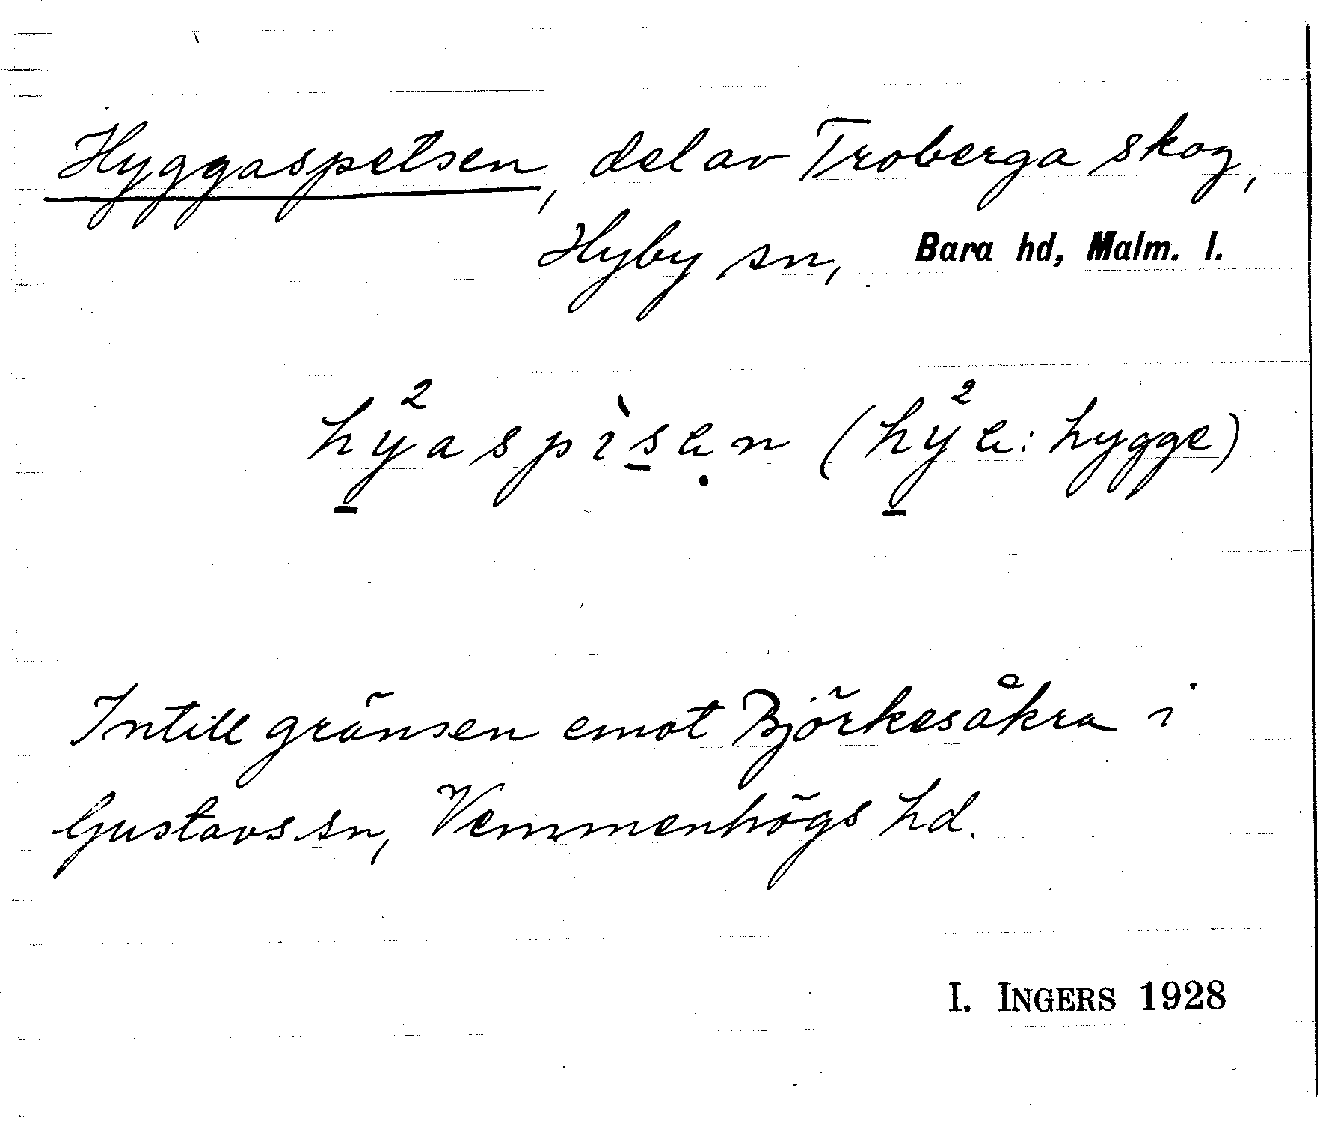 Hyggaspetsen, del av Troberga skog,
Hyby sn, Bara hd, Malm. l.
hy̱²aspìs̱ẹn (hy̱²e: hygge)
Intill gränsen emot Björkesåkra i
Gustavs sn, Vemmenhögs hd.
I. INGERS 1928